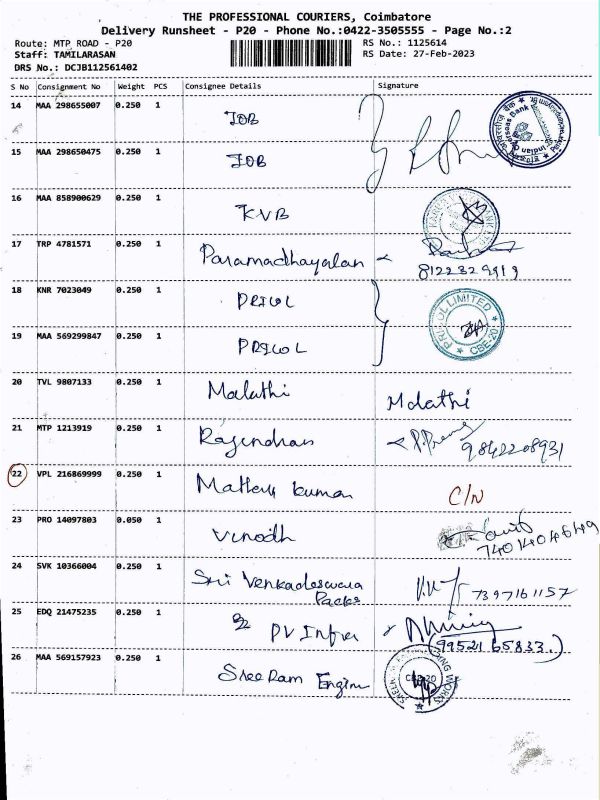 THE PROFESSIONAL COURIERS, Coimbatore
Delivery Runsheet - P20 - Phone No.:0422-3505555 - Page No.:2
Route: MTP ROAD - P20 RS No.: 1125614
Staff: TAMILARASAN RS Date: 27-Feb-2023
DRS No.: DCJB112561402
S No Consignment No Weight PCS Consignee Details Signature
14 MAA 298655007 0.250 1 IOB
15 MAA 298650475 0.250 1 IOB
16 MAA 858900629 0.250 1 KVB
17 TRP 4781571 0.250 1 Paramadhayalan
8122329919
18 KNR 7023049 0.250 1 PRICOL
PRICOL LIMITED CBE-20
19 MAA 569299847 0.250 1 PRICOL
20 TVL 9807133 0.250 1 Malathi Malathi
21 MTP 1213919 0.250 1 Rajendhan 9842208931
22 VPL 216869999 0.250 1 kumar C/N
23 PRO 14097803 0.050 1 Vinodh
7401404649
24 SVK 10366004 0.250 1 Sri Venkadeswara 7397161157
Packs
25 EDQ 21475235 0.250 1 PV Infra
(9952165833)
26 MAA 569157923 0.250 1 Sree Ram Engim CBE-20